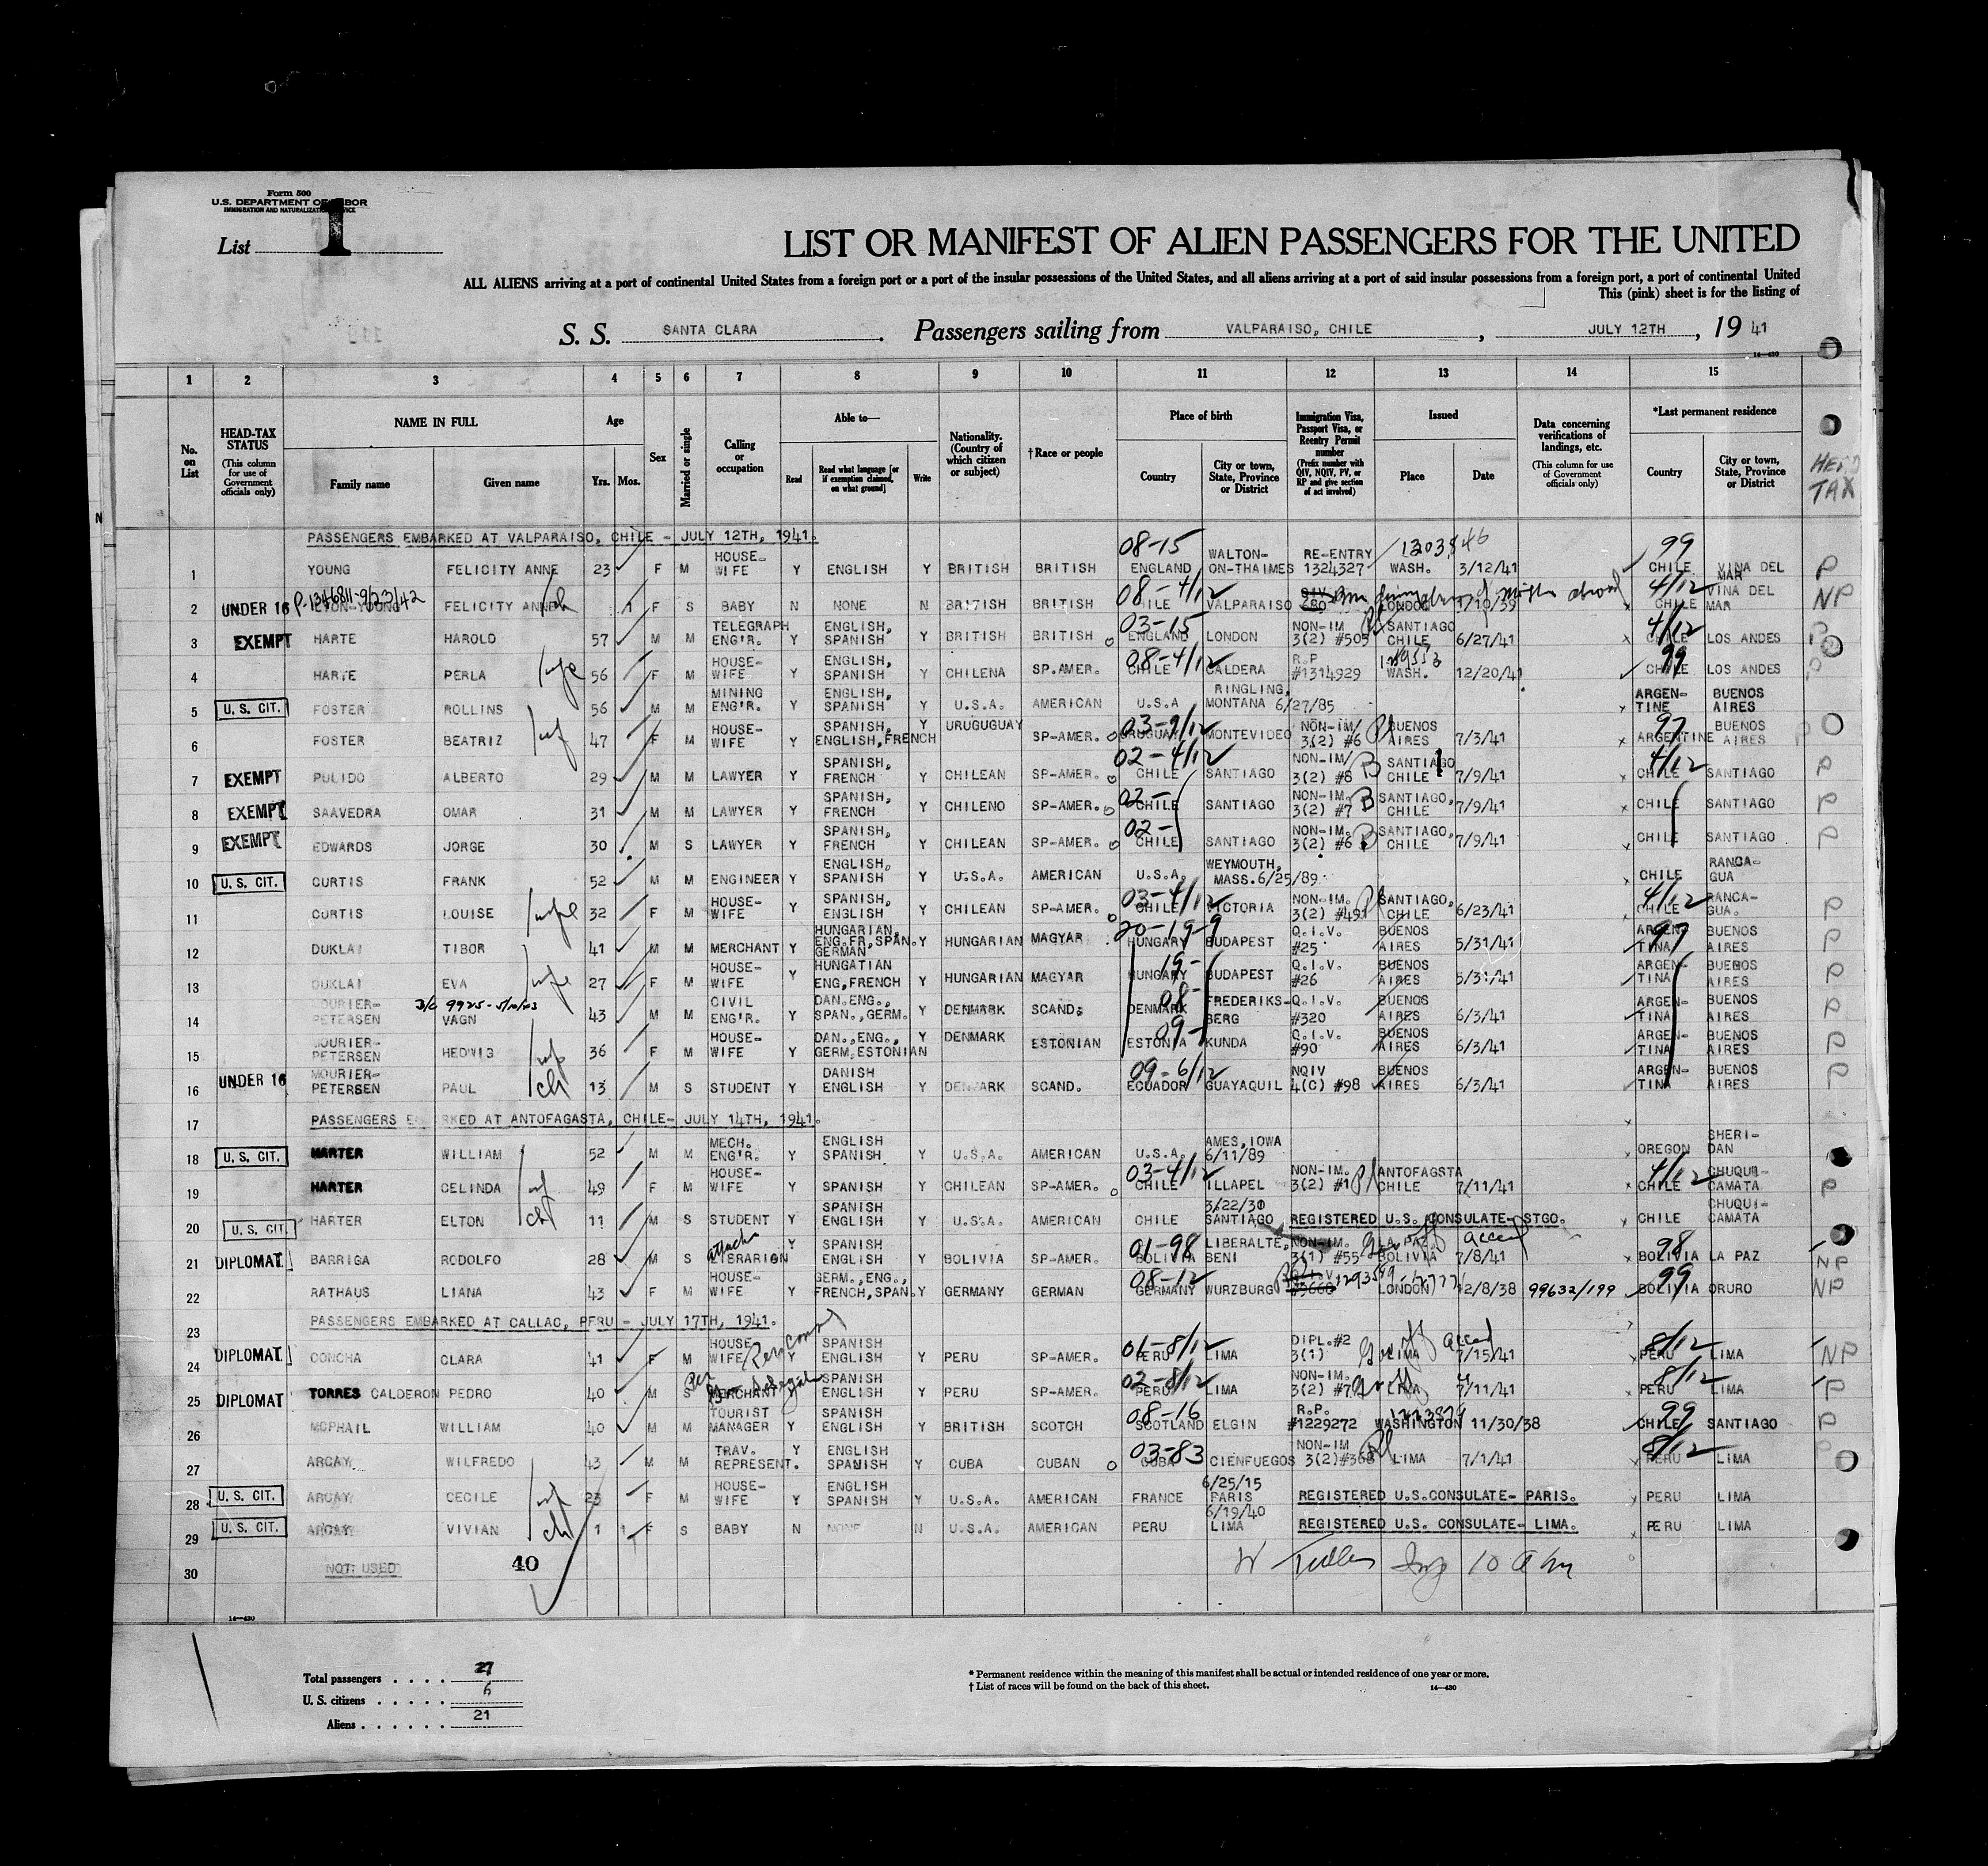 Form 500
U.S. DEPARTMENT OF LABOR
IMMIGRATION AND NATURALIZATION SERVICE
List 1
LIST OR MANIFEST OF ALIEN PASSENGERS FOR THE UNITED
ALL ALIENS arriving at a port of continental United States from a foreign port or a port of the insular possessions of the United States, and all aliens arriving at a port of said insular possessions from a foreign port, a port of continental United
This (pink) sheet is for the listing of
S. S. SANTA CLARA. Passengers sailing from VALPARAISO, CHILE, JULY 12TH, 19 41
14-430
1 2 3 4 5 6 7 8 9 10 11 12 13 14 15
No. on List
HEAD-TAX STATUS (This column for use of Government officials only)
NAME IN FULL Family name Given name
Age Yrs. Mos.
Sex
Married or single
Calling or occupation
Able to— Read Read what language [or if exemption claimed, on what ground] Write
Nationality. (Country of which citizen or subject)
†Race or people
Place of birth Country City or town, State, Province or District
Immigration Visa, Passport Visa, or Reentry Permit number (Prefix number with QIV, NQIV, PV, or RP and give section of act involved)
Issued Place Date
Data concerning verifications of landings, etc. (This column for use of Government officials only)
*Last permanent residence Country City or town, State, Province or District
HEAD TAX
PASSENGERS EMBARKED AT VALPARAISO, CHILE - JULY 12TH, 1941.
1 YOUNG FELICITY ANNE 23 F M HOUSE-WIFE Y ENGLISH Y BRITISH BRITISH 08-15 ENGLAND WALTON-ON-THAIMES RE-ENTRY 1324327 WASH. 3/12/41 99 CHILE VINA DEL MAR P
2 UNDER 16 P-1346811-9/23/42 FELICITY ANNE ch 1 F S BABY N NONE N BRITISH BRITISH 08-4/12 VALPARAISO LONDON 1/10/39 4/12 CHILE VINA DEL MAR NP
3 EXEMPT HARTE HAROLD 57 M M TELEGRAPH ENG'R. Y ENGLISH, SPANISH Y BRITISH BRITISH 03-15 ENGLAND LONDON NON-IM 3(2) #505 SANTIAGO CHILE 6/27/41 4/12 CHILE LOS ANDES P
4 HARTE PERLA wife 56 F M HOUSE-WIFE Y ENGLISH, SPANISH Y CHILENA SP.AMER. 08-4/12 CHILE CALDERA R.P #1314929 WASH. 12/20/41 99 CHILE LOS ANDES P
5 U. S. CIT. FOSTER ROLLINS 56 M M MINING ENG'R. Y ENGLISH, SPANISH Y U.S.A. AMERICAN U.S.A RINGLING, MONTANA 6/27/85 ARGEN-TINE BUENOS AIRES
6 FOSTER BEATRIZ wf 47 F M HOUSE-WIFE Y SPANISH, ENGLISH, FRENCH Y URUGUGUAY SP-AMER. 03-9/12 URUGUAY MONTEVIDEO NON-IM/ 3(2) #6 BUENOS AIRES 7/3/41 97 ARGENTINE BUENOS AIRES P
7 EXEMPT PULIDO ALBERTO 29 M M LAWYER Y SPANISH, FRENCH Y CHILEAN SP-AMER. 02-4/12 CHILE SANTIAGO NON-IM/ 3(2) #8 SANTIAGO CHILE 7/9/41 4/12 CHILE SANTIAGO P
8 EXEMPT SAAVEDRA OMAR 31 M M LAWYER Y SPANISH, FRENCH Y CHILENO SP-AMER. 02- CHILE SANTIAGO NON-IM. 3(2) #7 SANTIAGO, CHILE 7/9/41 CHILE SANTIAGO P
9 EXEMPT EDWARDS JORGE 30 M S LAWYER Y SPANISH, FRENCH Y CHILEAN SP-AMER. 02- CHILE SANTIAGO NON-IM. 3(2) #6 SANTIAGO, CHILE 7/9/41 CHILE SANTIAGO P
10 U. S. CIT. CURTIS FRANK 52 M M ENGINEER Y ENGLISH, SPANISH Y U.S.A. AMERICAN U.S.A. WEYMOUTH, MASS. 6/25/89 CHILE RANCA-GUA
11 CURTIS LOUISE wife 32 F M HOUSE-WIFE Y SPANISH, ENGLISH Y CHILEAN SP-AMER. 03-4/12 CHILE VICTORIA NON-IM. 3(2) #491 SANTIAGO, CHILE 6/23/41 4/12 CHILE RANCA-GUA. P
12 DUKLAI TIBOR 41 M M MERCHANT Y HUNGARIAN, ENG.FR,SPAN. GERMAN Y HUNGARIAN MAGYAR 20-19-9 HUNGARY BUDAPEST Q.I.V. #25 BUENOS AIRES 5/31/41 97 ARGEN-TINA BUENOS AIRES P
13 DUKLAI EVA wife 27 F M HOUSE-WIFE Y HUNGATIAN ENG,FRENCH Y HUNGARIAN MAGYAR 19- HUNGARY BUDAPEST Q.I.V. #26 BUENOS AIRES 5/31/41 ARGEN-TINA BUENOS AIRES P
14 MOURIER-PETERSEN VAGN 43 M M CIVIL ENG'R. Y DAN.ENG., SPAN.,GERM. Y DENMARK SCAND. 08- DENMARK FREDERIKS-BERG Q.I.V. #320 BUENOS AIRES 6/3/41 ARGEN-TINA BUENOS AIRES P
15 MOURIER-PETERSEN HEDWIG wf 36 F M HOUSE-WIFE Y DAN.,ENG., GERM.ESTONIAN Y DENMARK ESTONIAN 09- ESTONIA KUNDA Q.I.V. #90 BUENOS AIRES 6/3/41 ARGEN-TINA BUENOS AIRES P
16 UNDER 16 MOURIER-PETERSEN PAUL ch 13 M S STUDENT Y DANISH ENGLISH Y DENMARK SCAND. 09-6/12 ECUADOR GUAYAQUIL NQIV 4(C) #98 BUENOS AIRES 6/3/41 ARGEN-TINA BUENOS AIRES P
17 PASSENGERS EMBARKED AT ANTOFAGASTA, CHILE- JULY 14TH, 1941.
18 U. S. CIT. HARTER WILLIAM 52 M M MECH. ENG'R. Y ENGLISH SPANISH Y U.S.A. AMERICAN U.S.A. AMES, IOWA 6/11/89 OREGON SHERI-DAN
19 HARTER CELINDA wf 49 F M HOUSE-WIFE Y SPANISH Y CHILEAN SP-AMER. 03-4/12 CHILE ILLAPEL NON-IM. 3(2) #1 ANTOFAGSTA CHILE 7/11/41 4/12 CHILE CHUQUI-CAMATA P
20 U. S. CIT. HARTER ELTON ch 11 M S STUDENT Y SPANISH ENGLISH Y U.S.A. AMERICAN CHILE 3/22/30 SANTIAGO REGISTERED U.S. CONSULATE- STGO. CHILE CHUQUI-CAMATA
21 DIPLOMAT. BARRIGA RODOLFO 28 M S attache LIBRARION Y SPANISH ENGLISH Y BOLIVIA SP-AMER. 01-98 BOLIVIA LIBERALTE, BENI NON-IM. 3(1) #55 LA PAZ BOLIVIA 7/8/41 98 BOLIVIA LA PAZ NP
22 RATHAUS LIANA 43 F M HOUSE-WIFE Y GERM.,ENG., FRENCH,SPAN. Y GERMANY GERMAN 08-12 GERMANY WURZBURG LONDON 12/8/38 99632/199 99 BOLIVIA ORURO NP
23 PASSENGERS EMBARKED AT CALLAO, PERU - JULY 17TH, 1941.
24 DIPLOMAT. CONCHA CLARA 41 F M HOUSE WIFE Y SPANISH ENGLISH Y PERU SP-AMER. 01-8/12 PERU LIMA DIPL.#2 3(1) LIMA 7/15/41 8/12 PERU LIMA NP
25 DIPLOMAT TORRES CALDERON PEDRO 40 M S MERCHANT Y SPANISH ENGLISH Y PERU SP-AMER. 02-8/12 PERU LIMA NON-IM. 3(2) #72 LIMA 7/11/41 8/12 PERU LIMA P
26 MCPHAIL WILLIAM 40 M M TOURIST MANAGER Y SPANISH ENGLISH Y BRITISH SCOTCH 08-16 SCOTLAND ELGIN R.P. #1229272 WASHINGTON 11/30/38 99 CHILE SANTIAGO P
27 ARCAY WILFREDO 43 M M TRAV. REPRESENT. Y ENGLISH SPANISH Y CUBA CUBAN 03-83 CUBA CIENFUEGOS NON-IM 3(2)#368 LIMA 7/1/41 8/12 PERU LIMA P
28 U. S. CIT. ARCAY CECILE wf 23 F M HOUSE-WIFE Y ENGLISH SPANISH Y U.S.A. AMERICAN FRANCE 6/25/15 PARIS REGISTERED U.S.CONSULATE- PARIS. PERU LIMA
29 U. S. CIT. ARCAY VIVIAN ch 1 1 F S BABY N NONE N U.S.A. AMERICAN PERU 6/19/40 LIMA REGISTERED U.S. CONSULATE- LIMA. PERU LIMA
30 NOT USED 40
14-430
Total passengers . . . . 27
U. S. citizens . . . . . 6
Aliens . . . . . . 21
* Permanent residence within the meaning of this manifest shall be actual or intended residence of one year or more.
† List of races will be found on the back of this sheet.
14-430